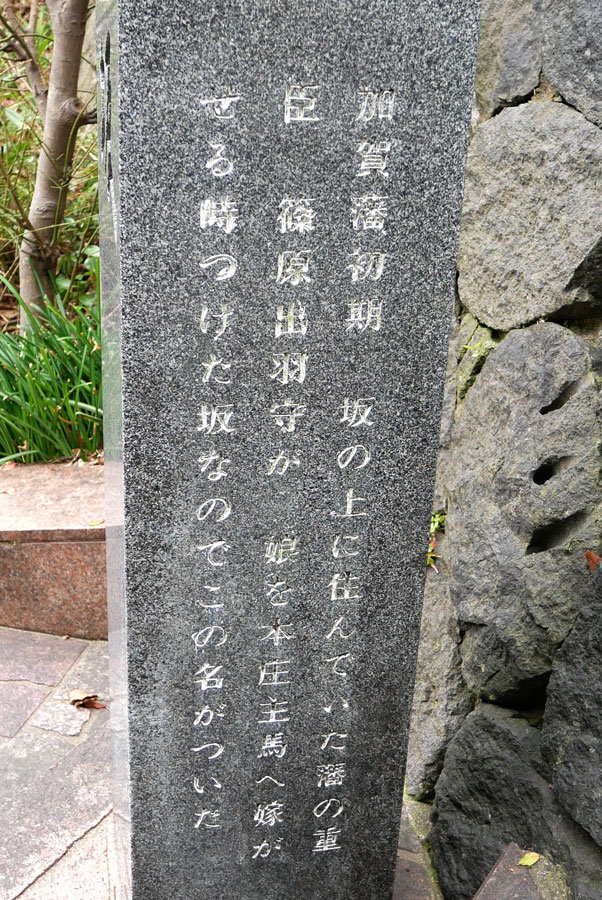 加賀藩初期　坂の上に住んでいた藩の重
臣　篠原出羽守が　娘を本庄主馬へ嫁が
せる時つけた坂なのでこの名がついた